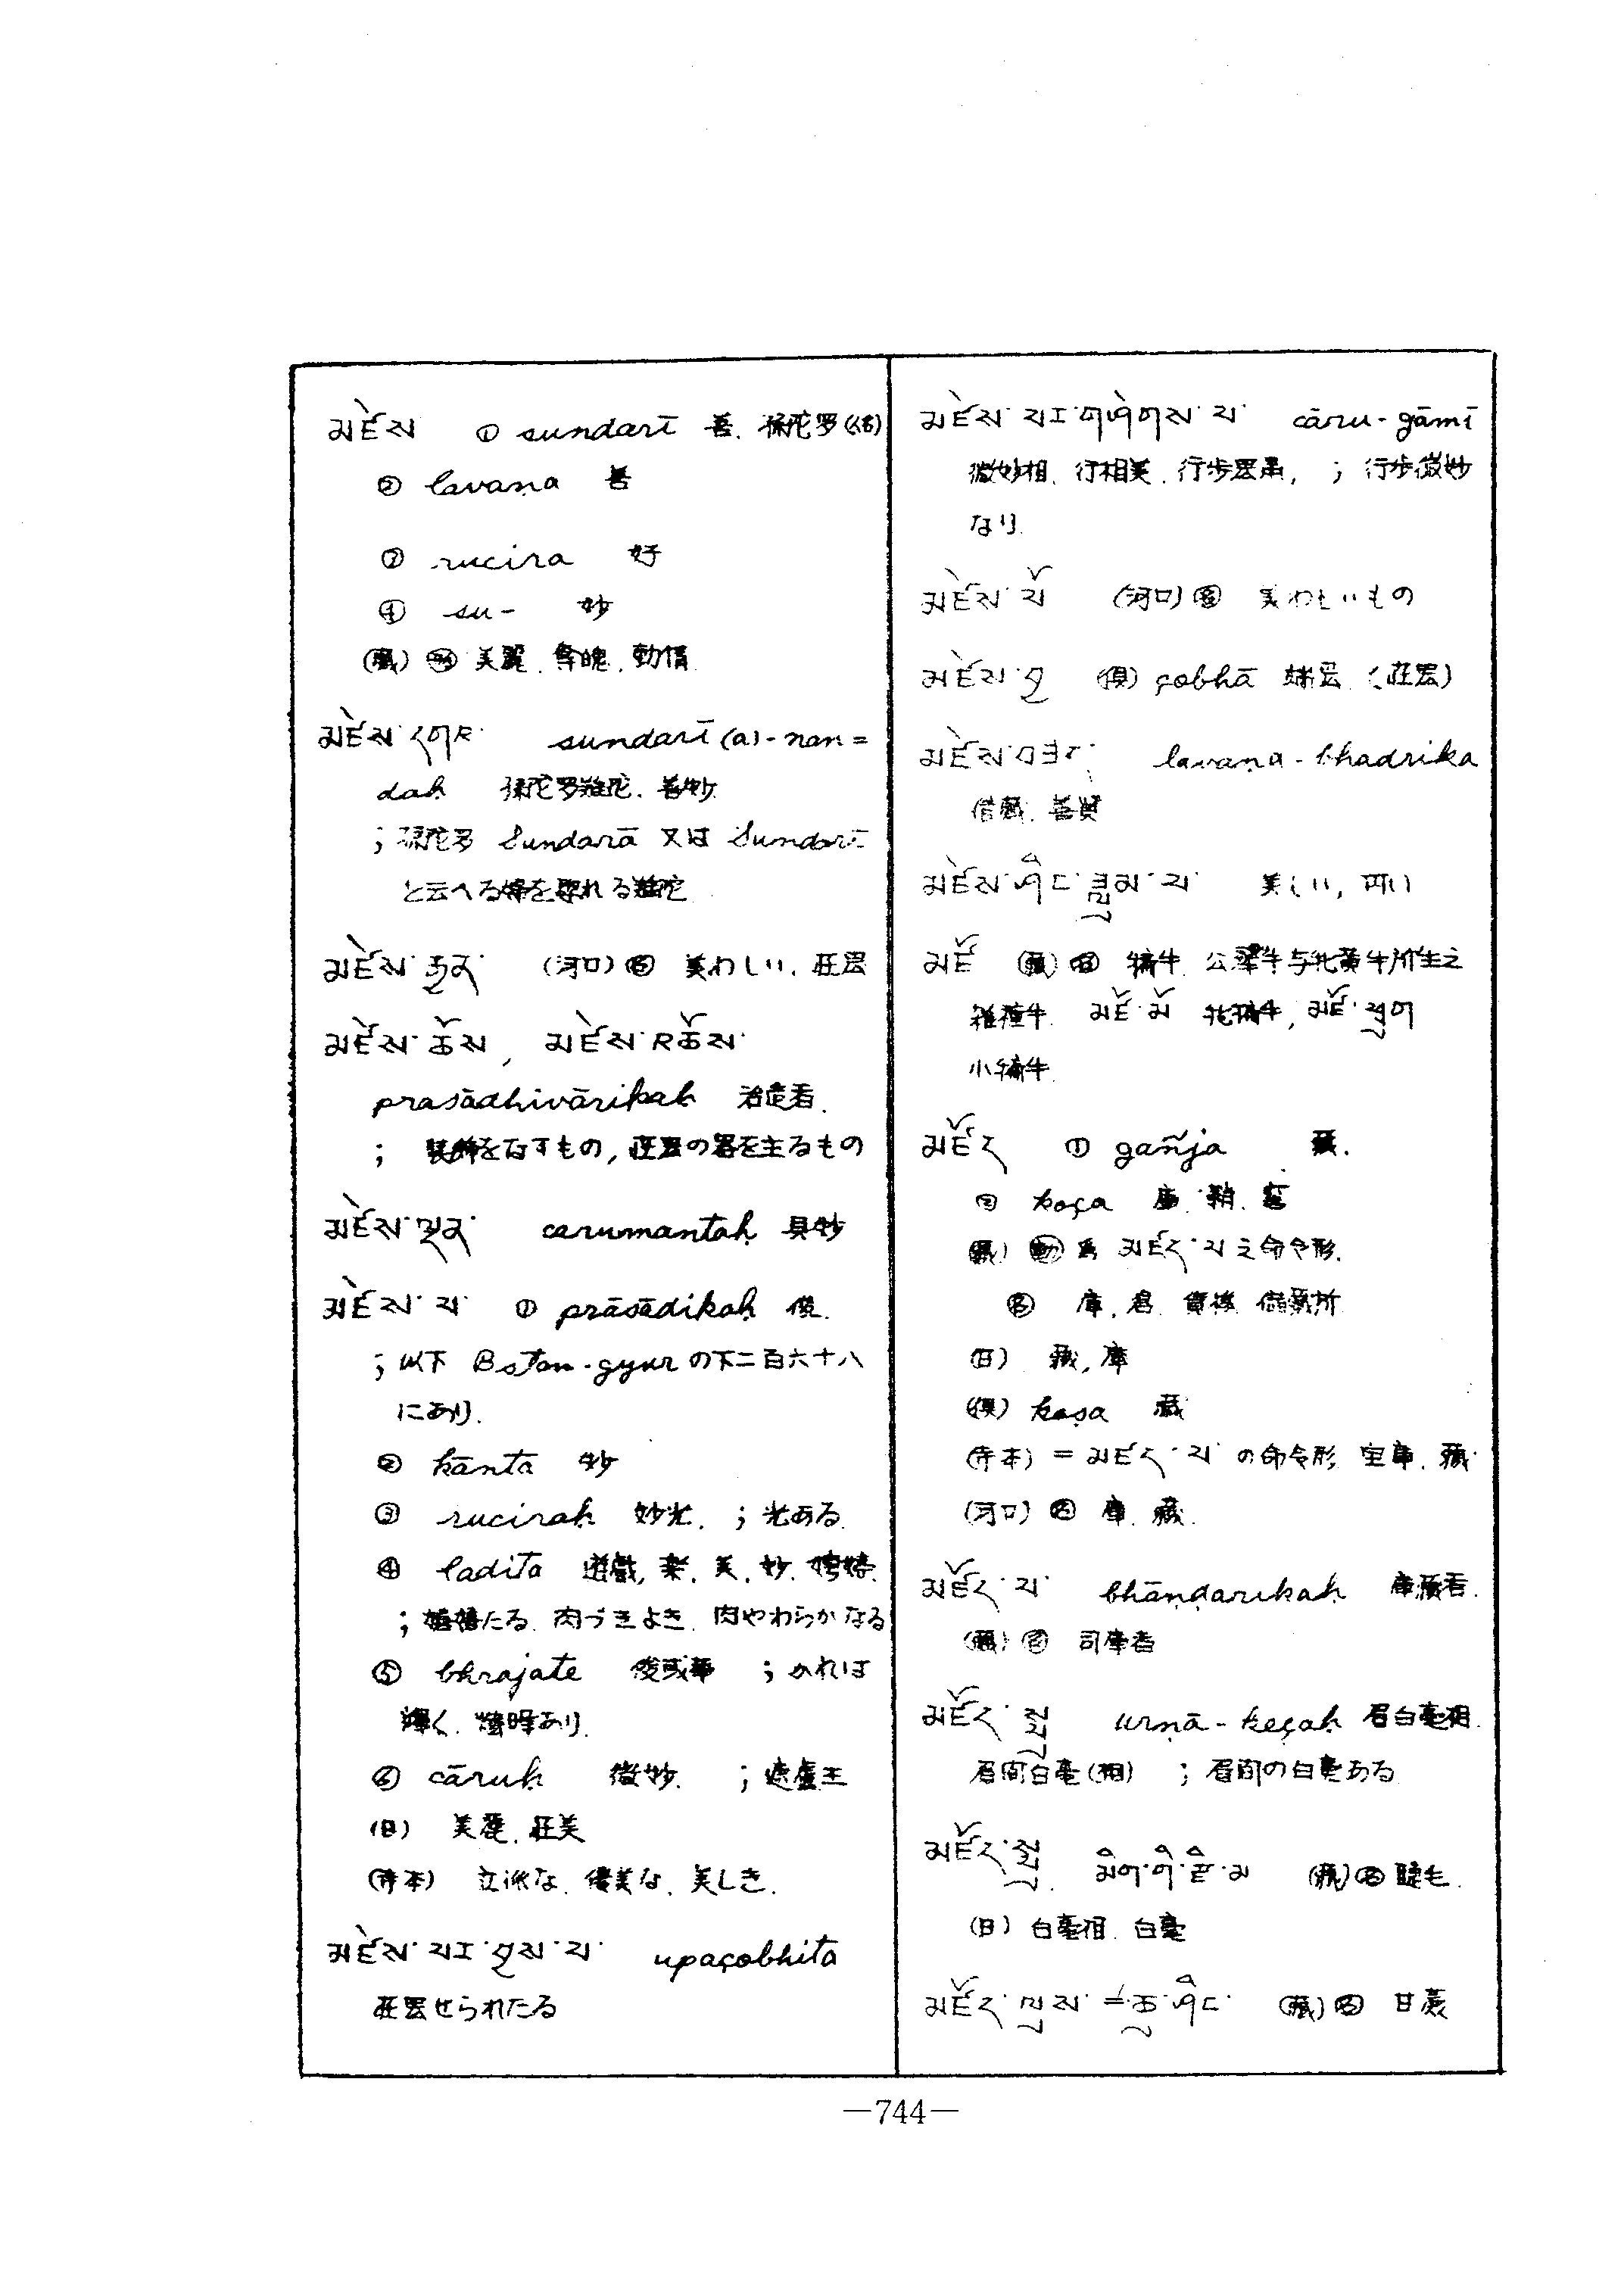 མཛེས ① sundarī 善. 孫陀罗
② lavaṇa 善
③ rucira 好
④ su- 妙
(蔵) 美麗. 奪魄. 動情
མཛེས་དགའ་ sundarī (a)-nan=
daḥ 孫陀罗難陀. 善妙.
; 孫陀罗 Sundarā 又は Sundarī
と云へる婦を娶れる難陀
མཛེས་རྒྱན་ (河口) 名 美わしい. 荘厳
མཛེས་ཆོས, མཛེས་འཆོས་
prasādhivārikaḥ
; 装飾をなすもの, 荘厳の器を主るもの
མཛེས་ལྡན་ carumantaḥ 具妙
མཛེས་པ་ ① prāsādikaḥ 俊.
; 以下 Bstan-gyur の下二百六十八
にあり.
② kānta 妙
③ rucirah 妙光. ; 光ある.
④ ladita 遊戯, 楽. 美. 妙.
たる. 肉づきよき. 肉やわらかなる
⑤ bhrajate ; かれは
輝く. あり.
⑥ cāruḥ 微妙. ; 遮盧王
(日) 美麗. 荘美
(寺本) 立派な. 優美な. 美しき.
མཛེས་པར་བྱས་པ་ upaçobhita
荘厳せられたる
མཛེས་པར་གཤེགས་པ་ cāru-gāmī
微妙相. 行相美. 行歩 ; 行歩微妙
なり.
མཛེས་པོ (河口) 名 美わしいもの
མཛེས་བྱ (倶) çobhā 端厳. (荘厳)
མཛེས་བཟང་ lavaṇa-bhadrika
善賢
མཛེས་ཤིང་ཟླུམ་པ་ 美しい, 円い
མཛོ (蔵) 名 犏牛. 公犛牛与牝黄牛所生之
雑種牛. མཛོ་མོ 牝犏牛, མཛོ་ཕྲུག
小犏牛.
མཛོད ① gañja 蔵.
② koça 庫. 鞘.
(蔵) 動 為 མཛད་པ་ 之命令形.
名 庫. 儲蔵所
(日) 蔵, 庫
(倶) kośa 蔵
(寺本) = མཛད་པ་ の命令形. 宝庫. 蔵.
(河口) 名 庫. 蔵.
མཛོད་པ་ bhāṇḍarikaḥ 庫蔵者.
(蔵) 名 司庫者
མཛོད་སྤུ urṇā-keçaḥ 眉白毫相.
眉間白毫(相) ; 眉間の白毫ある
མཛོད་སྤུ. མིག་གི་རྫི་མ (蔵) 名 睫毛.
(日) 白毫相. 白毫
མཛོད་ལུས་ = བུ་ཤིང་ (蔵) 名 甘蔗
—744—